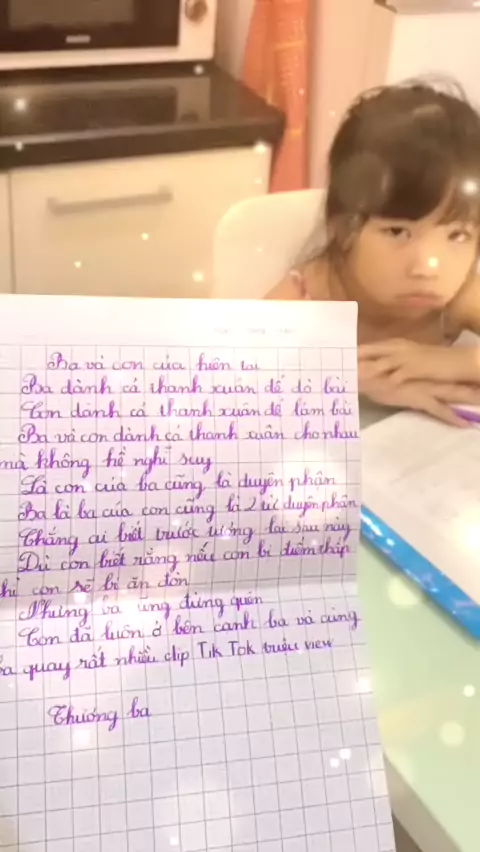 Ba và con của hiện tại
Ba dành cả thanh xuân để dò bài
Con dành cả thanh xuân để làm bài
Ba và con dành cả thanh xuân cho nhau
mà không hề nghĩ suy
Là con của ba cũng là duyên phận
Ba là ba của con cũng là 2 từ duyên phận
Chẳng ai biết trước tương lai sau này
Dù con biết rằng nếu con bị điểm thấp
thì con sẽ bị ăn đòn
Nhưng ba đừng quên
Con đã luôn ở bên cạnh ba và cùng
ba quay rất nhiều clip Tik Tok triệu view
Thương ba